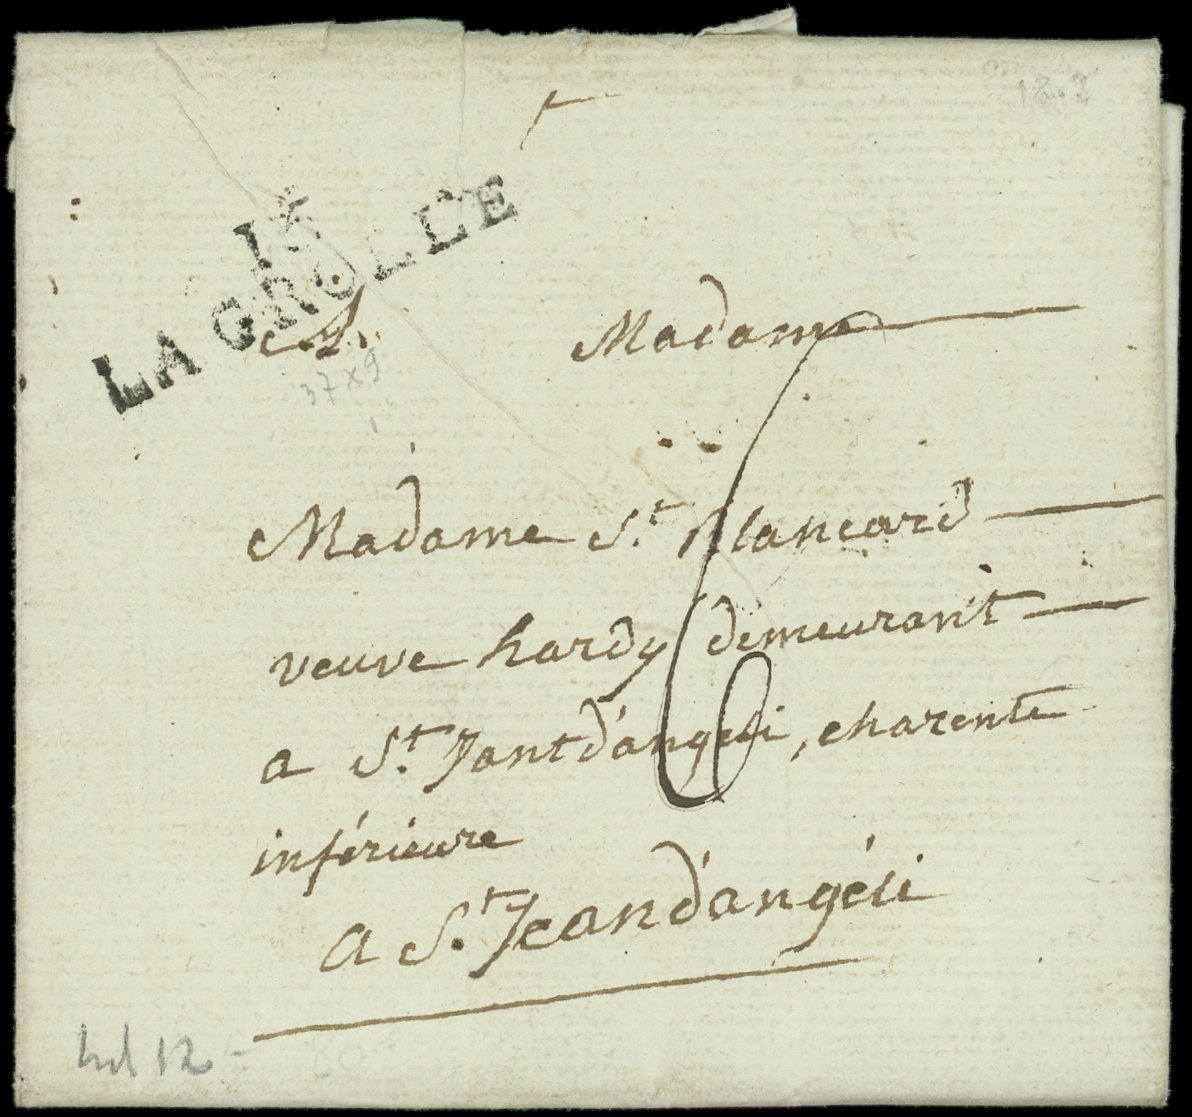 15
LAGROLLE
A Madame
37 x 9
Madame St. Blancard
veuve hardy demeurant
6
a St. Jantd'angeli, charente
inférieure
a St. Jeand'angéli
ind 12